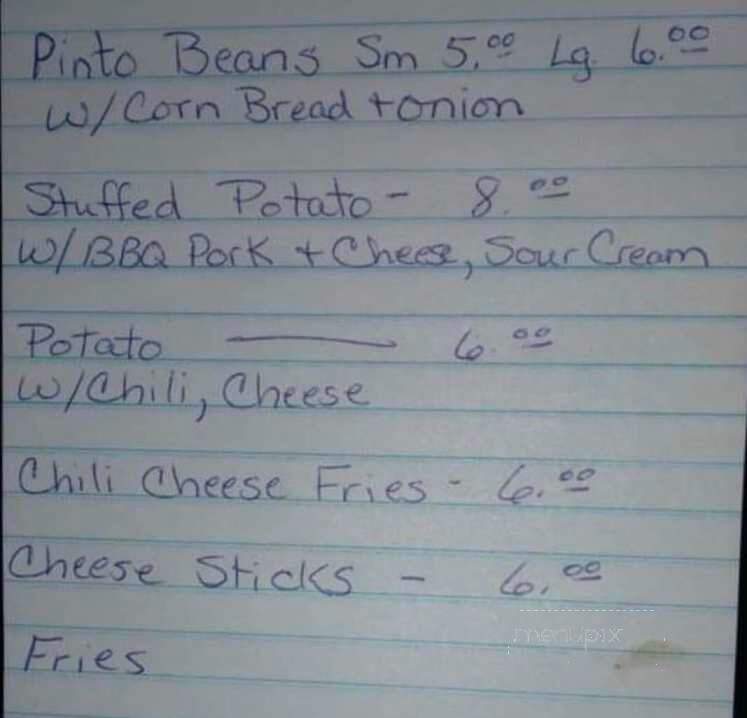 Pinto Beans Sm 5.00 Lg. 6.00
W/Corn Bread + onion
Stuffed Potato - 8.00
W/BBQ Pork + Cheese, Sour Cream
Potato — 6.00
W/Chili, Cheese
Chili Cheese Fries - 6.00
Cheese Sticks - 6.00
menupix
Fries